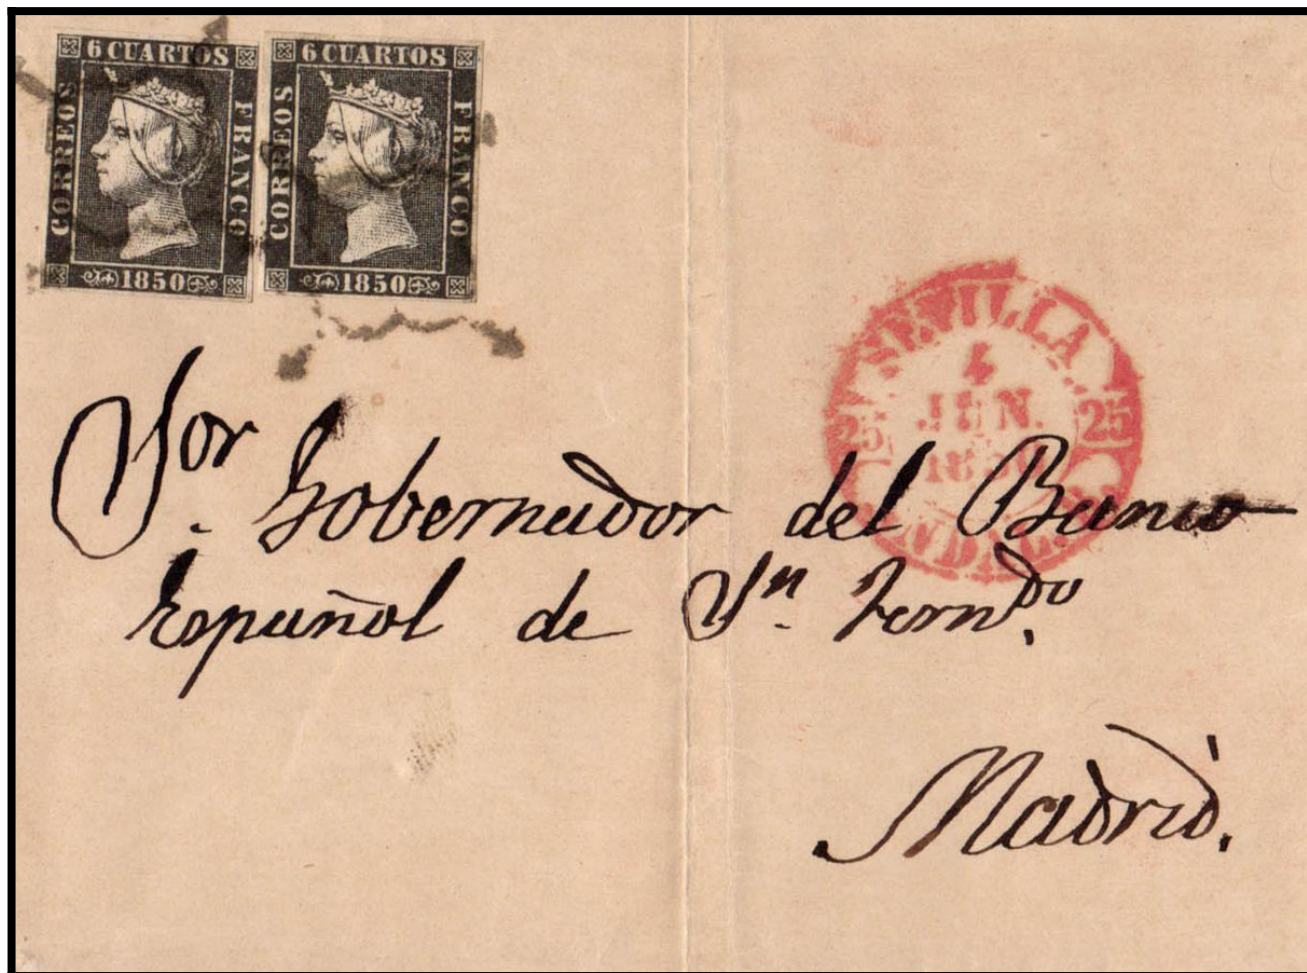 6 CUARTOS
CORREOS
FRANCO
1850
6 CUARTOS
CORREOS
FRANCO
1850
SEVILLA
4
JUN.
25 25
1850
Sor. Gobernador del Banco
Español de Sn. Fern.do
Madrid.